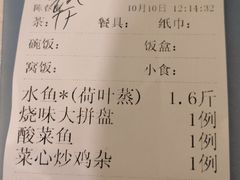 10月10日 12:14:32
茶: 餐具: 纸巾:
碗饭: 饭盒:
窝饭: 小食:
水鱼*(荷叶蒸) 1.6斤
烧味大拼盘 1例
酸菜鱼 1例
菜心炒鸡杂 1例